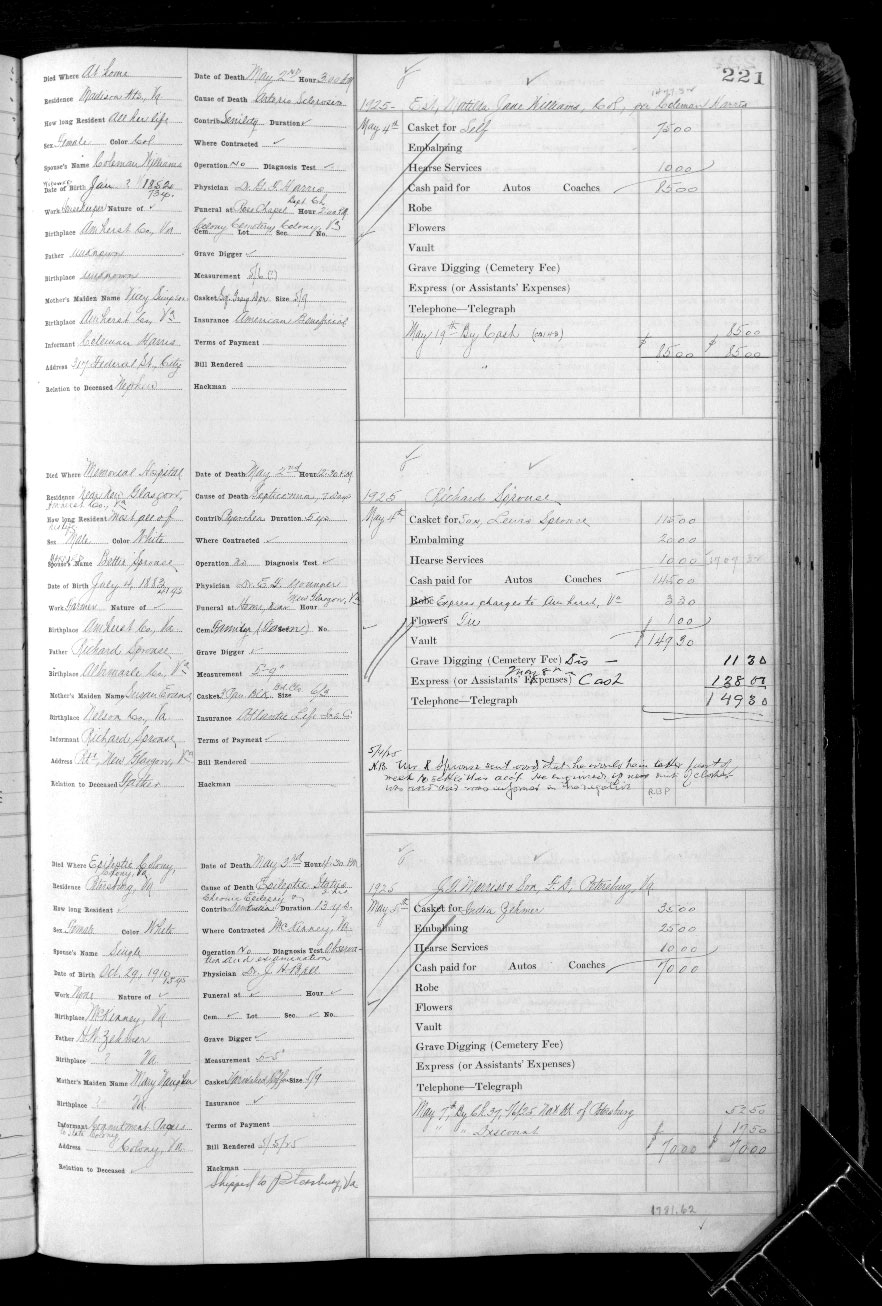 221
Died Where At home
Residence Madison Hts, Va
How long Resident All her life
Sex Female Color Col
Spouse's Name Coleman Williams
Date of Birth Jan ? 1852
73 y.
Work Housekeeper Nature of ✓
Birthplace Amherst Co, Va
Father unknown
Birthplace unknown
Mother's Maiden Name
Birthplace Amherst Co, Va
Informant Coleman Harris
Address 317 Federal St., City
Relation to Deceased Nephew
Date of Death May 2nd Hour 3:00 AM
Cause of Death Arterio Sclerosis
Contrib Senility Duration ✓
Where Contracted ✓
Operation No Diagnosis Test ✓
Physician Dr. Harris
Funeral at Rose Chapel Bapt Ch. Hour
Colony Cemetery, Colony, Va
Cem. Lot Sec. No.
Grave Digger ✓
Measurement 5/6
Casket Size 5/9
Insurance American Beneficial
Terms of Payment
Bill Rendered
Hackman
1925- Est, Jane Williams, Col, Coleman Harris
May 4th Casket for Self 75 00
Embalming
Hearse Services 10 00
Cash paid for Autos Coaches 85 00
Robe
Flowers
Vault
Grave Digging (Cemetery Fee)
Express (or Assistants' Expenses)
Telephone—Telegraph
May 19th By Cash 85 00
$ 85 00 $ 85 00
Died Where Memorial Hospital
Residence near New Glasgow,
Amherst Co., Va
How long Resident Most all of
his life
Sex Male Color White
Spouse's Name Bettie Sprouse
Date of Birth July 4, 1883
Work Farmer Nature of ✓
Birthplace Amherst Co, Va
Father Richard Sprouse
Birthplace Albemarle Co, Va
Mother's Maiden Name Susan
Birthplace Nelson Co, Va
Informant Richard Sprouse
Address New Glasgow, Va
Relation to Deceased Father
Date of Death May 2nd Hour 12:30 AM
Cause of Death Septicemia, 7 days
Contrib Duration 5 ys
Where Contracted ✓
Operation no Diagnosis Test ✓
Physician Dr.
New Glasgow, Va
Funeral at Home near Hour
Cem. Family No.
Grave Digger ✓
Measurement 5'-9"
Casket Size 6/3
Insurance Atlantic Life Ins Co
Terms of Payment ✓
Bill Rendered
Hackman
1925 Richard Sprouse
May 4th Casket for Son, Lewis Sprouse 115 00
Embalming 20 00
Hearse Services 10 00
Cash paid for Autos Coaches 145 00
Robe Express charges to Amherst, Va 3 30
Flowers 1 00
Vault $149 30
Grave Digging (Cemetery Fee) Dis — 11 30
May 8th
Express (or Assistants' Expenses) Cash 138 00
Telephone—Telegraph 149 30
5/4/25
N.B. Mr R Sprouse sent word that he would be in latter part of
week to settle this acct. He enquired if new suit of clothes
was used and was informed in the negative
R.D.P
Died Where Epileptic Colony,
Colony, Va
Residence Petersburg, Va
How long Resident ✓
Sex Female Color White
Spouse's Name Single
Date of Birth Oct. 29, 1910
Work None Nature of ✓
Birthplace McKenney, Va
Father Zehmer
Birthplace ? Va.
Mother's Maiden Name Mary Vaughan
Birthplace ? Va.
Informant Commitment Papers
to State Colony
Address Colony, Va
Relation to Deceased ✓
Date of Death May 3rd Hour
Cause of Death Epileptic Status
Chronic Epilepsy
Contrib Duration 13 ys.
Where Contracted McKenney, Va.
Operation No Diagnosis Test Observa-
tion and examination
Physician Dr. J. H. Bell
Funeral at ✓ Hour ✓
Cem. ✓ Lot Sec. ✓ No.
Grave Digger ✓
Measurement 5-5
Casket Varnished Size 5/9
Insurance ✓
Terms of Payment
Bill Rendered 5/5/25
Hackman
Shipped to Petersburg, Va
1925 Morriss & Son, F.D., Petersburg, Va
May 5th Casket for India Zehmer 35 00
Embalming 25 00
Hearse Services 10 00
Cash paid for Autos Coaches 70 00
Robe
Flowers
Vault
Grave Digging (Cemetery Fee)
Express (or Assistants' Expenses)
Telephone—Telegraph
May 7th, By Ck. of Petersburg 52 50
" " Discount 17 50
$ 70 00 $ 70 00
1781.62